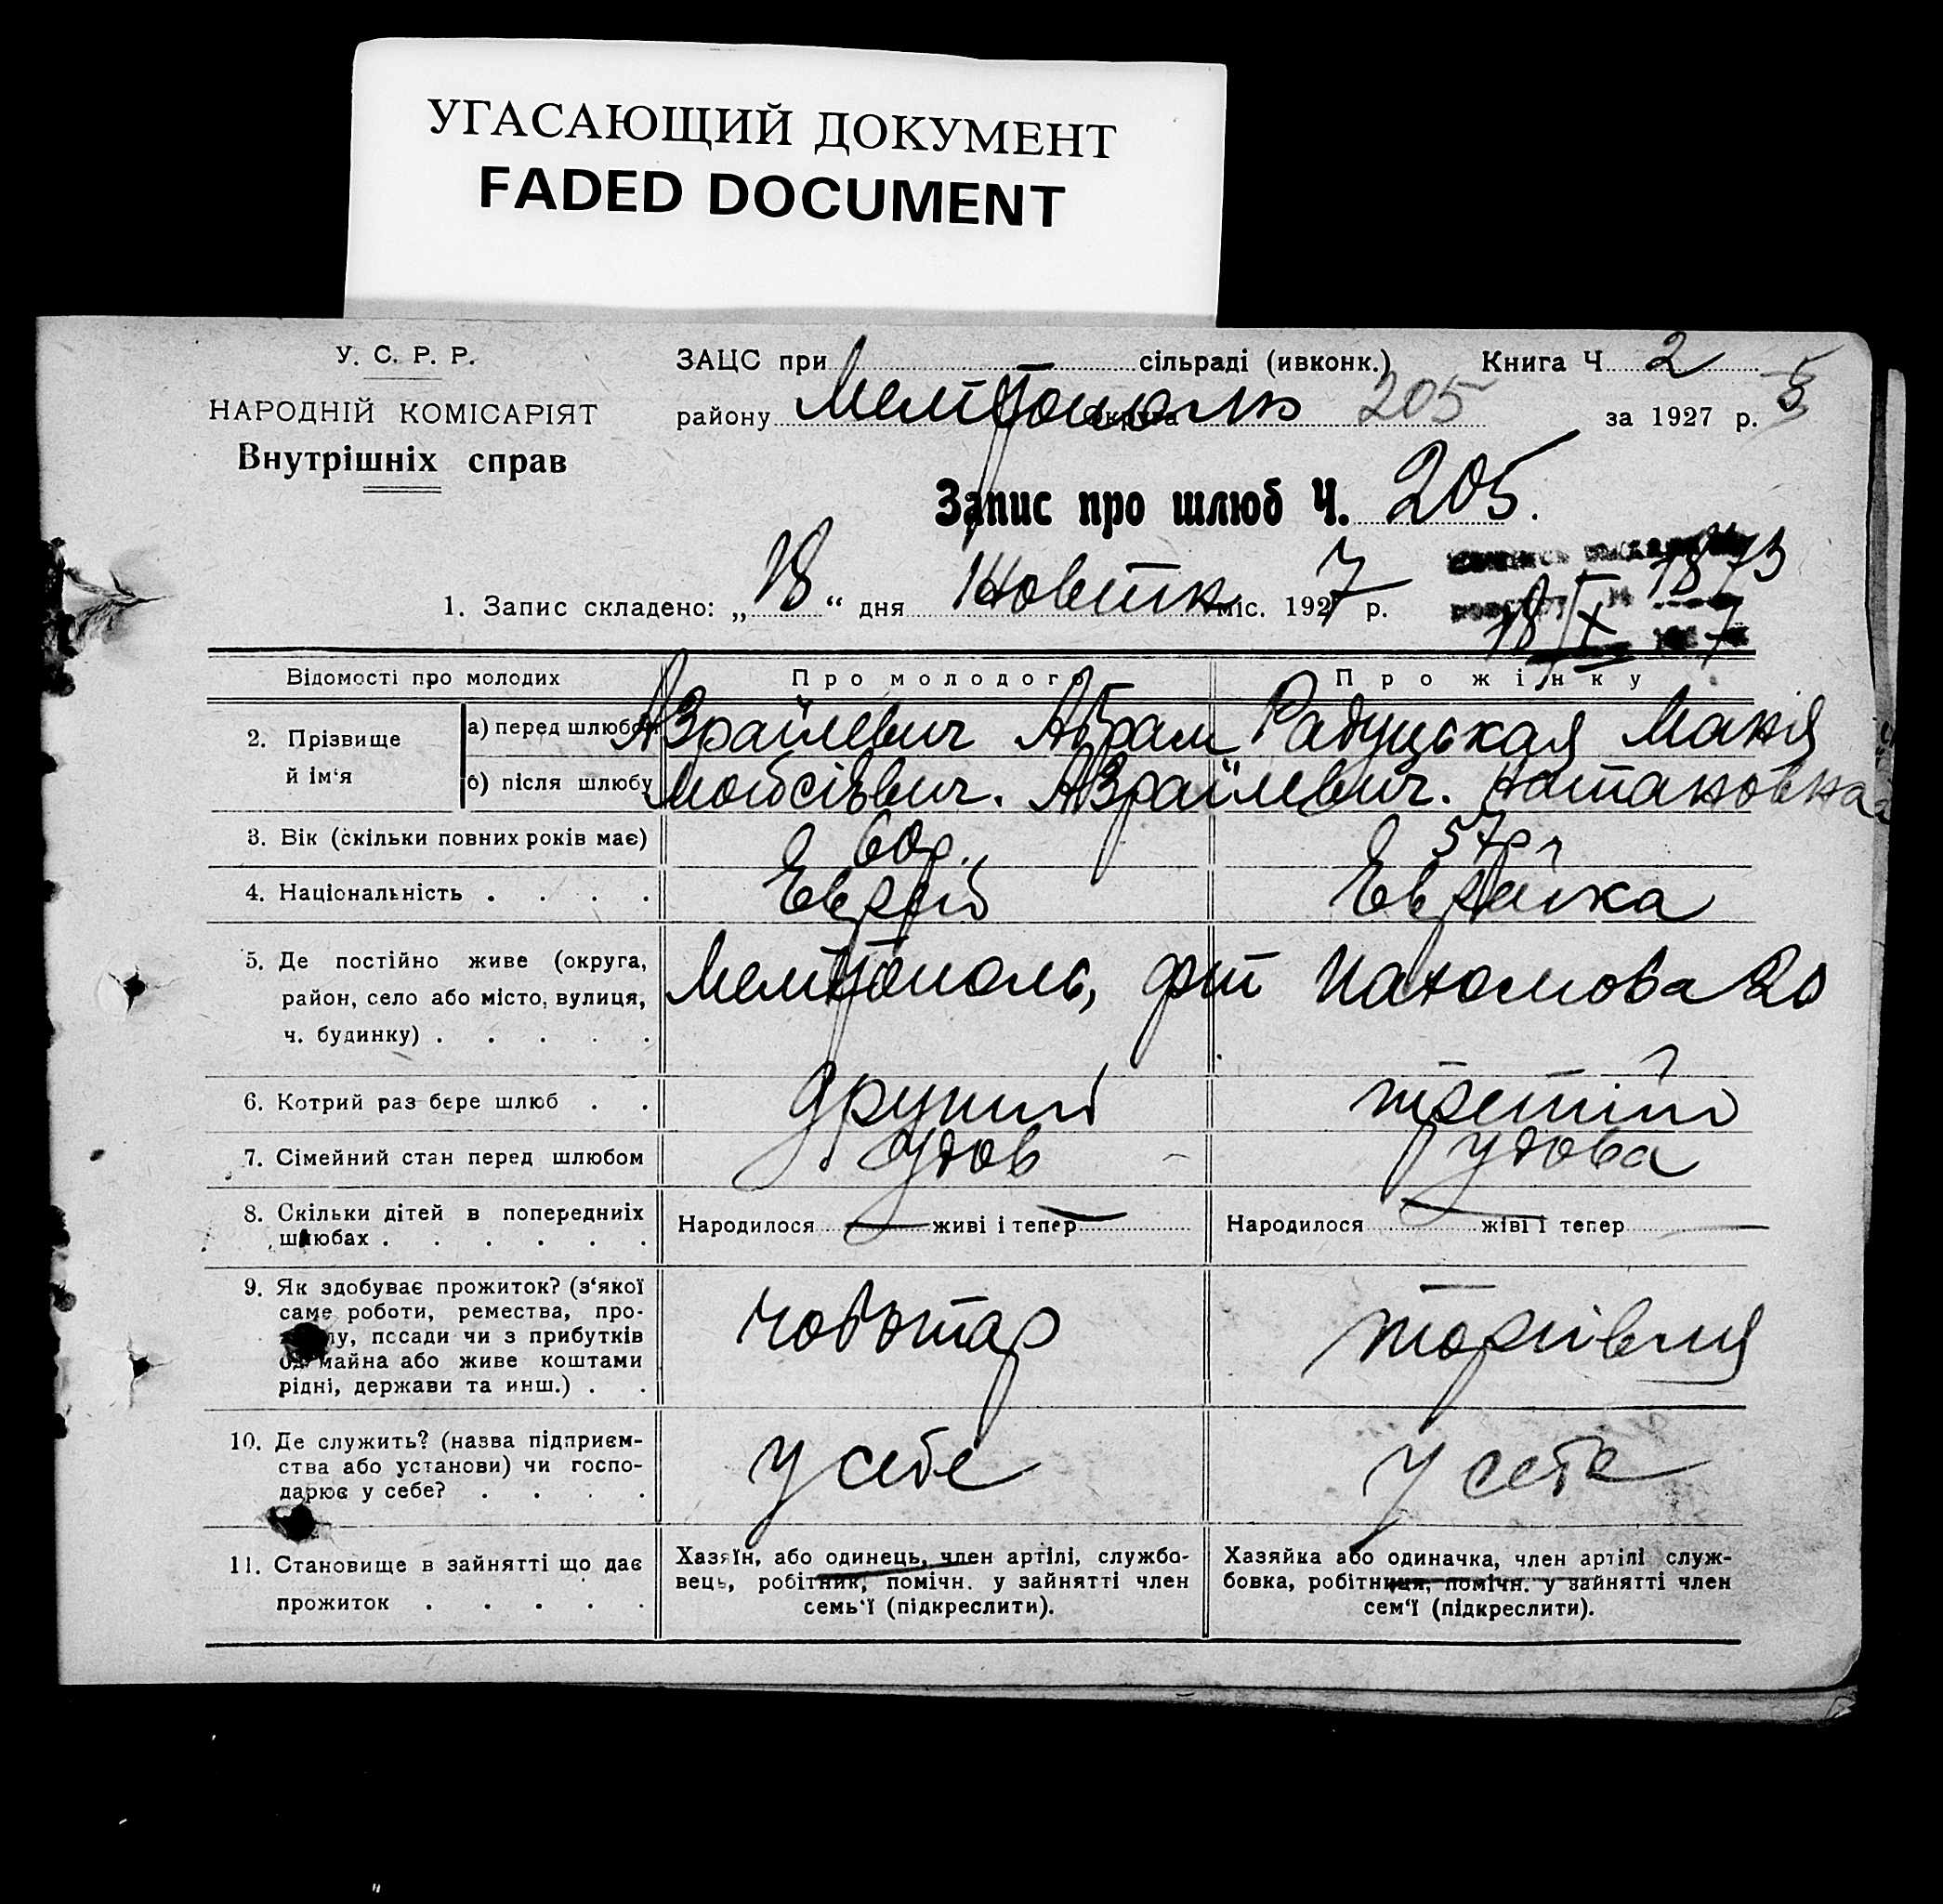 УГАСАЮЩИЙ ДОКУМЕНТ
FADED DOCUMENT
У. С. Р. Р.
НАРОДНІЙ КОМІСАРІЯТ
Внутрішніх справ
ЗАЦС при сільраді (ивконк.) Книга Ч. 2
району Мелітополь округа 205 за 1927 р.
Запис про шлюб Ч. 205.
1. Запис складено: „18“ дня Жовтн міс. 1927 р.
1873
18/X 7
Відомості про молодих Про молодого Про жінку
2. Прізвище й ім‘я
а) перед шлюбом Азраїлевич Абрам Радуцькая Маня
б) після шлюбу Мойсієвич. Азраїлевич. Натановна
3. Вік (скільки повних років має) 60 р. 57 р
4. Національність . . . . Еврей Еврейка
5. Де постійно живе (округа, район, село або місто, вулиця, ч. будинку) . . . . . Мелітополь, 20
6. Котрий раз бере шлюб . . другий третій
7. Сімейний стан перед шлюбом удов удова
8. Скільки дітей в попередниіх шлюбах . . . . . . Народилося — живі і тепер — Народилося — жіві і тепер —
9. Як здобуває прожиток? (з‘якої саме роботи, ремества, про- лу, посади чи з прибутків од майна або живе коштами рідні, держави та инш.) . . чоботар торгівля
10. Де служить? (назва підприєм-ства або установи) чи госпо-дарює у себе? . . . . у себе у себе
11. Становище в зайнятті що дає прожиток . . . . .
Хазяїн, або одинець, член артілі, службо-
вець, робітник, помічн. у зайнятті член
семь‘ї (підкреслити).
Хазяйка або одиначка, член артілі служ-
бовка, робітниця, помічн. у зайнятті член
сем‘ї (підкреслити).